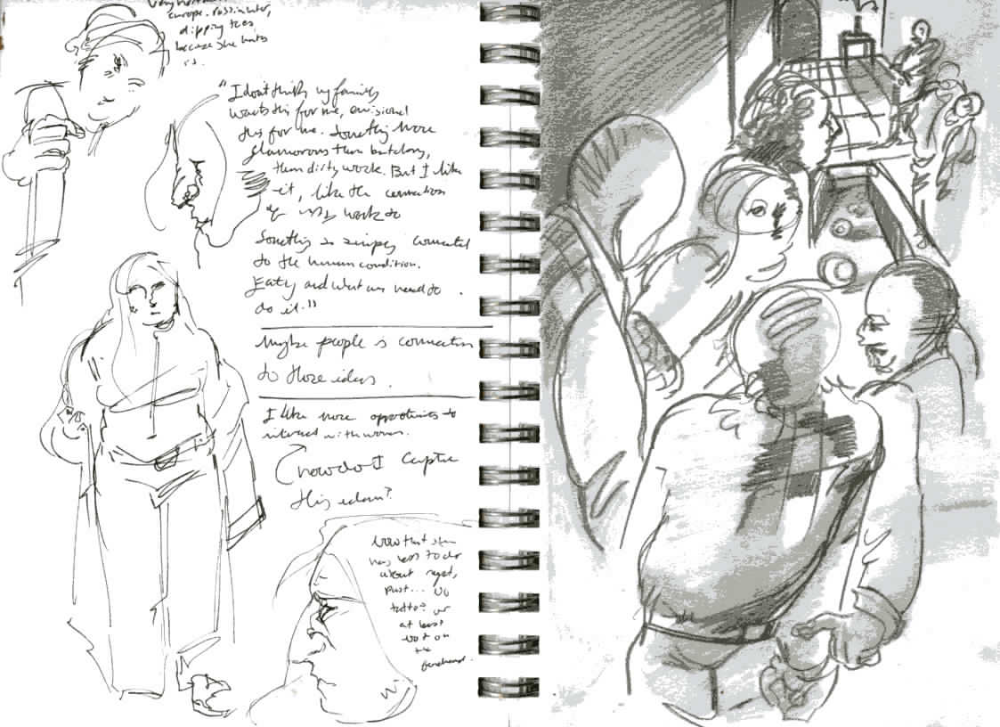 Europe.
dipping toes
because she hates
"I dont think my family
wants this for me, envisioned
this for me. Something more
glamorous than butchery,
than dirty work. But I like
it, like the connection
of my work to
Something so simply connected
to the human condition.
Eating and what we need to
do it."
Maybe people's connection
to those ideas.
I like more opportunities to
interact with
How do I capture
this
Now that she
has less to do
about regret,
past... no
tattoo? or
at least
not on
the
forehead.